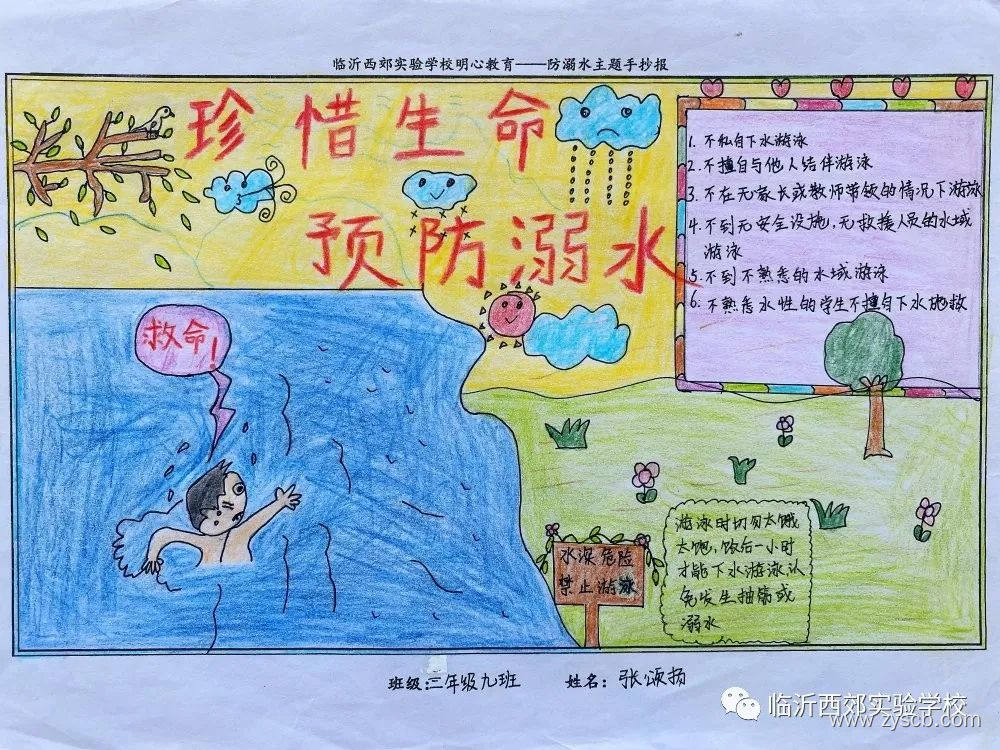 临沂西郊实验学校明心教育——防溺水主题手抄报
珍惜生命
预防溺水
1.不私自下水游泳
2.不擅自与他人结伴游泳
3.不在无家长或教师带领的情况下游泳
4.不到无安全设施,无救援人员的水域
游泳
5.不到不熟悉的水域游泳
6.不熟悉水性的学生不擅自下水施救
救命!
水深危险
禁止游泳
游泳时切勿太饿
太饱,饭后一小时
才能下水游泳以
免发生抽筋或
溺水
班级:三年级九班 姓名:张颂扬
临沂西郊实验学校
www.zyscb.com